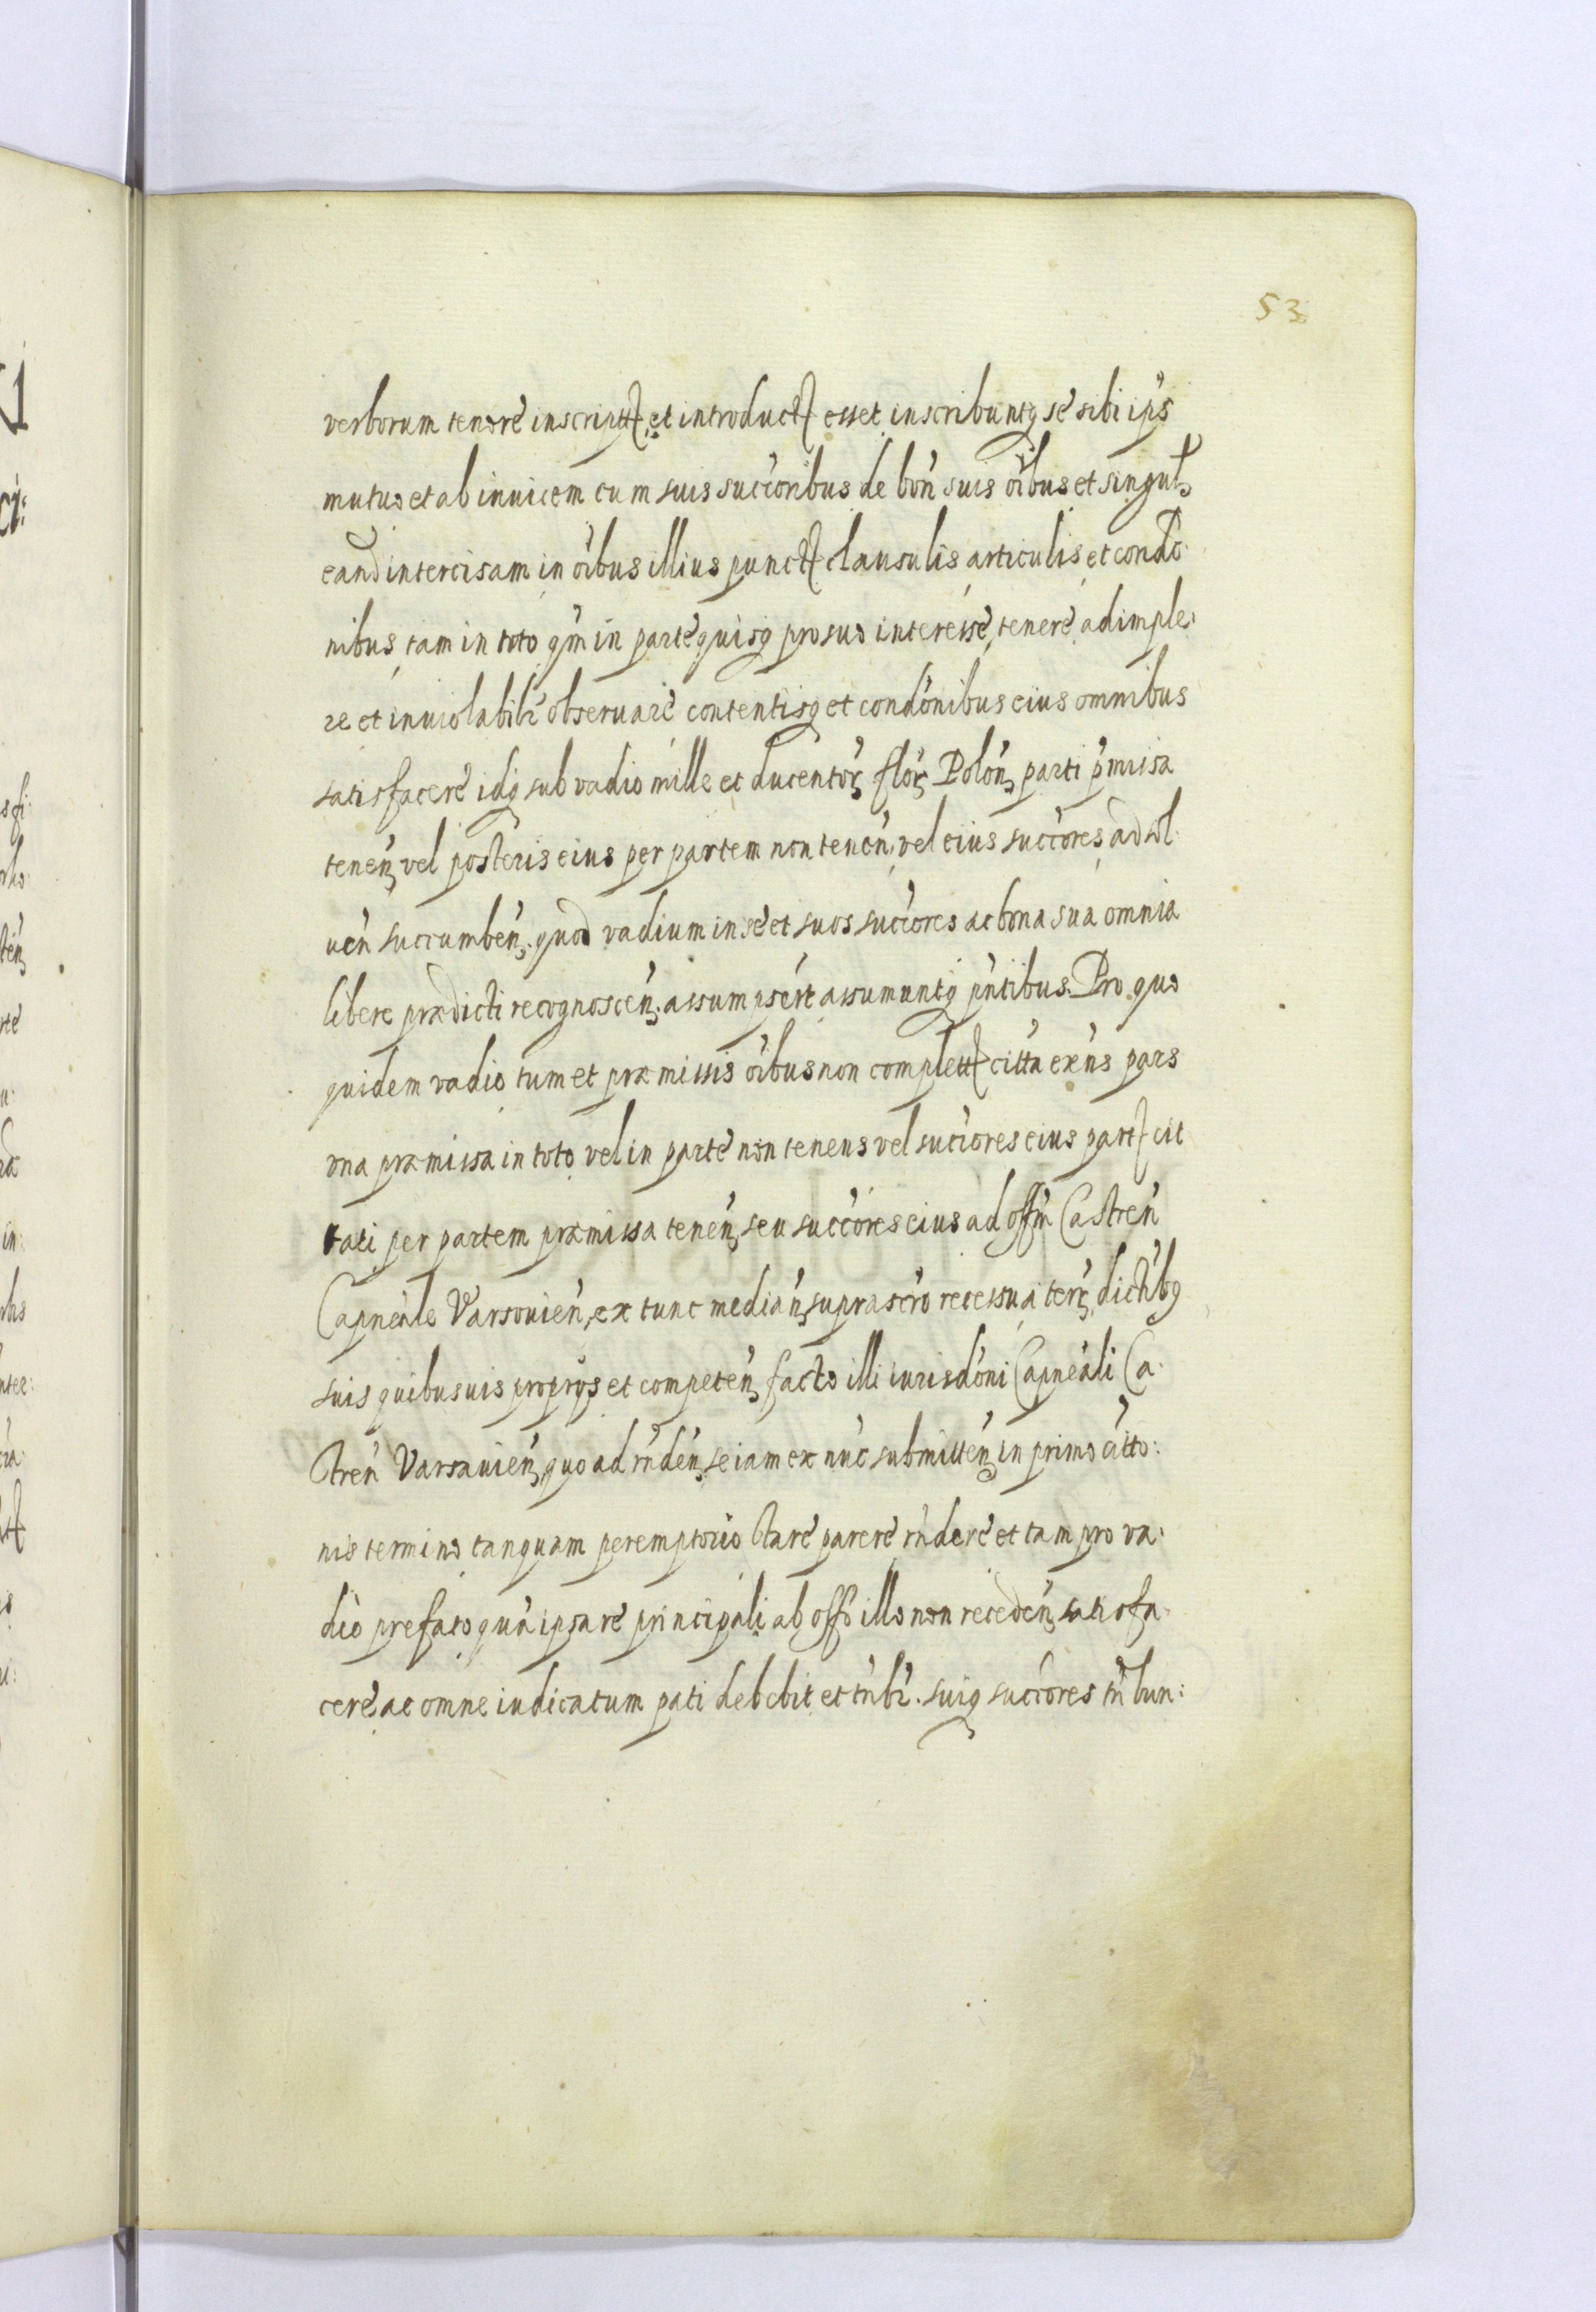 53
verborum tenore inscript et introduct esset inscribuntq se sibi ips
mutuo et ab inuicem cum suis succoribus de bon suis oibus et singul
eand intercisam in oibus illius punct clausulis articulis et condo
nibus tam in toto qm in parte quisq pro suo interesse, tenere adimple:
re et inuiolabilr obseruare contentisq et condonibus eius omnibus
satisfacere idq sub vadio mille et ducentor flor Polon parti pmissa
tenen vel posteris eius per partem non tenen vel eius succores ad sol
uen succumben. quod vadium in se et suos succores ac bona sua omnia
libere prædicti recognoscen. assumpsert assumuntq pntibus. Pro quo
quidem vadio tum et præmissis oibus non complett citta exns pars
vna præmissa in toto vel in parte non tenens vel succores eius part cit
tati per partem præmissa tenen seu succores eius ad offm Castren
Capneale Varsouien, ex tunc median suprascro recessu a terr dictibq
suis quibusuis proprys et competen facto illi iurisdoni Capneali Ca:
stren Varsauien quo ad rnden se iam ex nuc submitten in primo citto:
nis termino tanquam peremptorio stare parere rndere et tam pro va:
dio prefato qua ipsa re principali ab offo illo non receden satisfa
cere ac omne iudicatum pati debebit et tnbr. suiq succores tnbun: